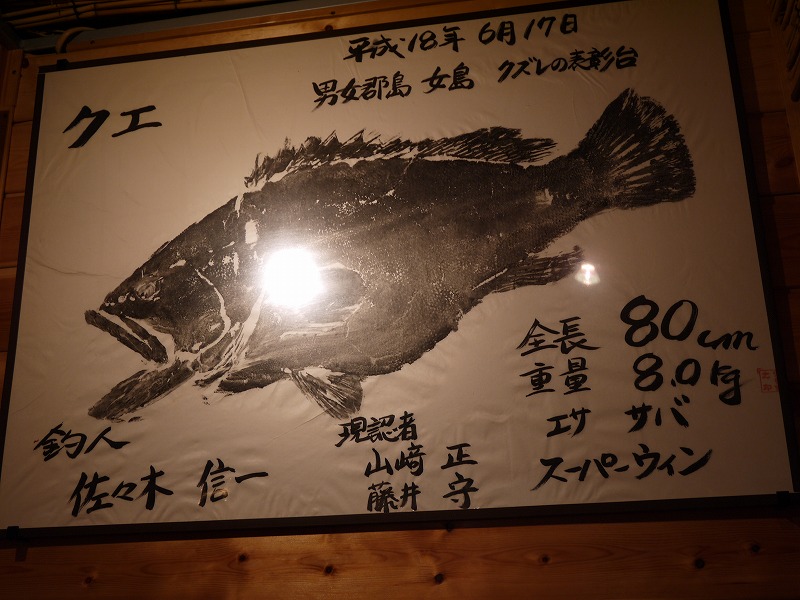 平成18年 6月17日
男女郡島 女島 クズレの表彰台
クエ
全長 80cm
重量 8.0kg
エサ サバ
スーパーウィン
現認者
山崎 正
藤井 守
釣人
佐々木 信一